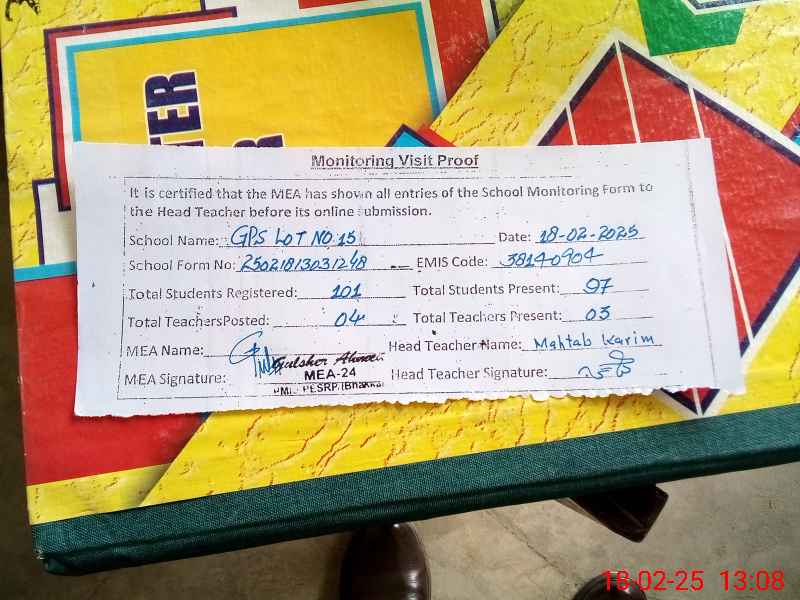 TER
Monitoring Visit Proof
It is certified that the MEA has shown all entries of the School Monitoring Form to
the Head Teacher before its online submission.
School Name: GPS LOT NO 15 Date: 18-02-2025
School Form No: 25021813031248 EMIS Code: 38140904
Total Students Registered: 101 Total Students Present: 97
Total TeachersPosted: 04 Total Teachers Present: 03
MEA Name: Head Teacher Name: Mahtab Karim
Gulsher Ahmed
MEA Signature: MEA-24 Head Teacher Signature:
PESRP (Bhakkar
18-02-25 13:08